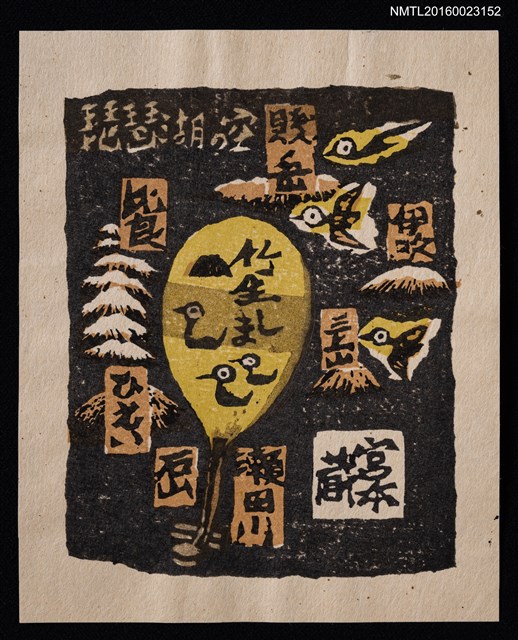 NMTL20160023152
琵琶湖の空
賤岳
比良
伊吹
竹生しま
三上山
ひえい
石山
瀬田川
宮本
蔵